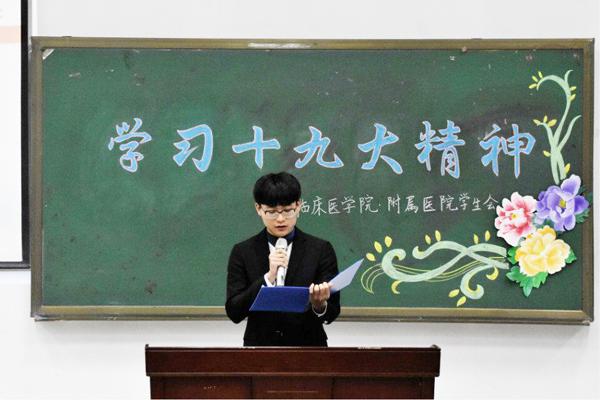 学习十九大精神
临床医学院·附属医院学生会